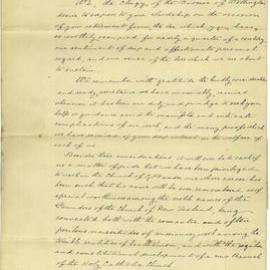 We, the Clergy of the Diocese of Wellington,
desire to express to your Lordship on the occasion
of your retirement from the See which you have
so worthily occupied for nearly a quarter of a century
our sentiments of deep and affectionate personal
regard, and our sense of the loss which we are about
to sustain.
We remember with gratitude the kindly consideration
and ready assistance we have invariably received
whenever it has been our duty and privilege to seek your
help or guidance amid the manifold and intricate
complications of our work, and the many proofs which
we have received of your deep interest in the welfare of
each of us.
Besides these considerations it will ever be to each of
us a matter of pride that we have been privileged
to work in the Church of
been such that his name will be ever remembered as of
special worthiness among the noble names of the
Founders of the Church of New Zealand, being
connected both with the romantic and
perilous necessities of missionary work among the
and with the regular
and constitutional development of a new Branch
of the Holy Catholic Church